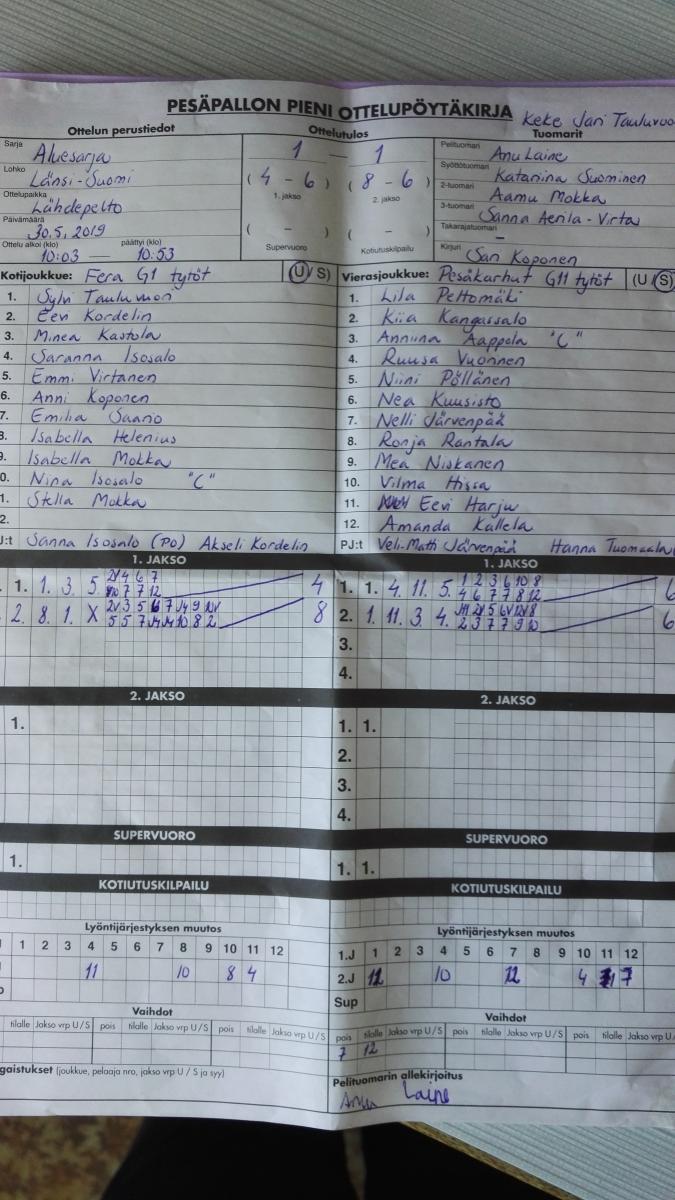 PESÄPALLON PIENI OTTELUPÖYTÄKIRJA
Keke Jari
Ottelun perustiedot
Ottelutulos
Tuomarit
Sarja Aluesarja
Lohko Länsi-Suomi
Ottelupaikka Lähdepelto
Päivämäärä 30.5.2019
Ottelu alkoi (klo) päättyi (klo)
10:03 — 10:53
1 — 1
( 4 - 6 ) ( 8 - 6 )
1. jakso 2. jakso
( - ) ( - )
Supervuoro Kotiutuskilpailu
Pelituomari Anu Laine
Syöttötuomari Katariina Suominen
2-tuomari Aamu Mokka
3-tuomari Sanna Aerila-Virta
Takarajatuomari –
Kirjuri Sari Koponen
Kotijoukkue: Fera G1 tytöt (U/S)
1. Sylvi
2. Eevi Kordelin
3. Minea Kastola
4. Saranna Isosalo
5. Emmi Virtanen
6. Anni Koponen
7. Emilia Saario
8. Isabella Helenius
9. Isabella Mokka
0. Nina Isosalo "C"
1. Stella Mokka
2.
J:t Sanna Isosalo (PO) Akseli Kordelin
Vierasjoukkue: Pesäkarhut G11 tytöt (U/S)
1. Lila Peltomäki
2. Kiia Kangassalo
3. Anniina Aappola "C"
4. Ruusa Vuorinen
5. Niini Pöllänen
6. Nea Kuusisto
7. Nelli Järvenpää
8. Ronja Rantala
9. Mea Niskanen
10. Vilma Hissa
11. Eevi Harju
12. Amanda Kallela
PJ:t Veli-Matti Järvenpää Hanna
1. JAKSO
1. 1. 3. 5. 4
2. 8. 1. X 8
1. JAKSO
1. 1. 4. 11. 5. 1 2 3 6 10 8 6
4 6 7 7 8 12
2. 1. 11. 3. 4. 6
2 3 7 7 9 10
3.
4.
2. JAKSO
1.
2. JAKSO
1. 1.
2.
3.
4.
SUPERVUORO
1.
SUPERVUORO
1. 1.
KOTIUTUSKILPAILU
KOTIUTUSKILPAILU
Lyöntijärjestyksen muutos
1 2 3 4 5 6 7 8 9 10 11 12
11 10 8 4
Lyöntijärjestyksen muutos
1.J 1 2 3 4 5 6 7 8 9 10 11 12
2.J 10 12 4 7
Sup
Vaihdot
tilalle Jakso vrp U/S pois tilalle Jakso vrp U/S pois tilalle Jakso vrp U/S
Vaihdot
pois tilalle Jakso vrp U/S pois tilalle Jakso vrp U/S pois tilalle Jakso vrp U
7 12
gaistukset (joukkue, pelaaja nro, jakso vrp U / S ja syy)
Pelituomarin allekirjoitus
Anu Laine